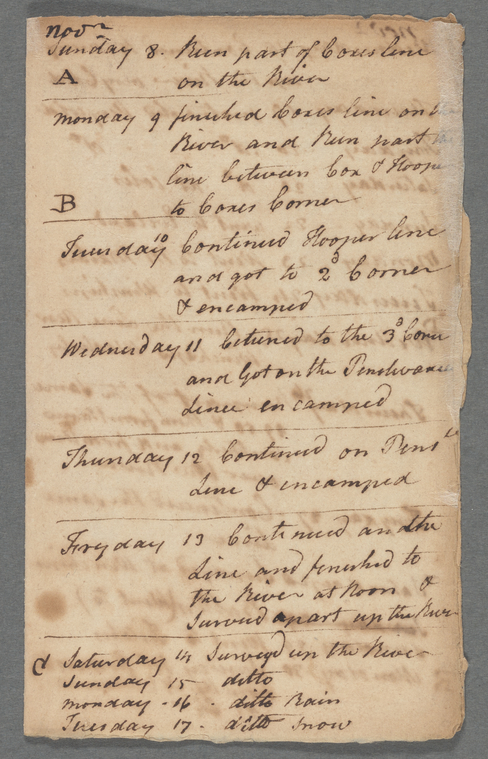 Novr
Sunday 8. Run part of Coxes line
A on the River
monday 9 finished Coxes line on
River and Run part
line between Cox & Hooper
B to Coxes Corner
Tuesday 10 Continued Hooper line
and got to 2d Corner
& encamped
Wednesday 11 Returned to the 3d Corner
and Got on the
Linee encamped
Thursday 12 Continued on
Line & encamped
Fryday 13 Continued
Line and finished to
the River at Noon &
Survied apart up the River
C Saturday 14 Surveyd up the River
Sunday 15 ditto
monday - 16 - ditto Rain
Tuesday 17 - ditto Snow